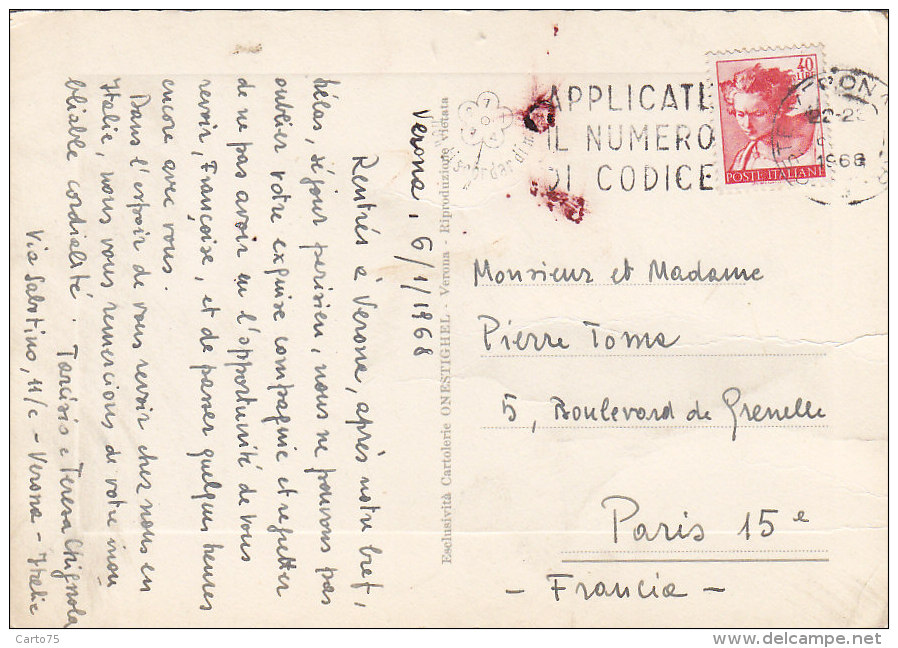 Verona, 6/1/1968
Rentrés à Verone, après notre bref,
hélas, séjour parisien, nous ne pouvons pas
oublier votre exquise compagnie et regretter
de ne pas avoir eu l'opportunité de vous
revoir, Françoise, et de passer quelques heures
encore avec vous.
Dans l'espoir de vous revoir chez nous en
Italie, nous vous remercions de votre inou
bliable cordialité.
Tarcisio e Teresa Chignola
Via Sabotino, 11/c - Verona - Italie
Esclusività Cartolerie ONESTIGHEL - Verona - Riproduzione Vietata
APPLICATE
IL NUMERO
DI CODICE
40
LIRE
POSTE ITALIANE
1968
Monsieur et Madame
Pierre Toma
5, Boulevard de Grenelle
Paris 15e
- Francia -
Carto75
delcampe.net